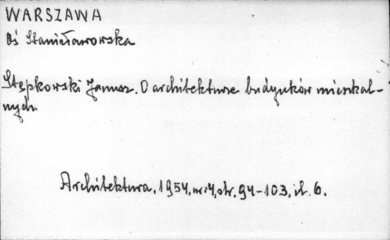 WARSZAWA
Oś Stanisławowska
Stępkowski Janusz. O architekturze budynków mieszkal-
nych.
Architektura, 1954, nr 4, str. 94-103, il. 6.